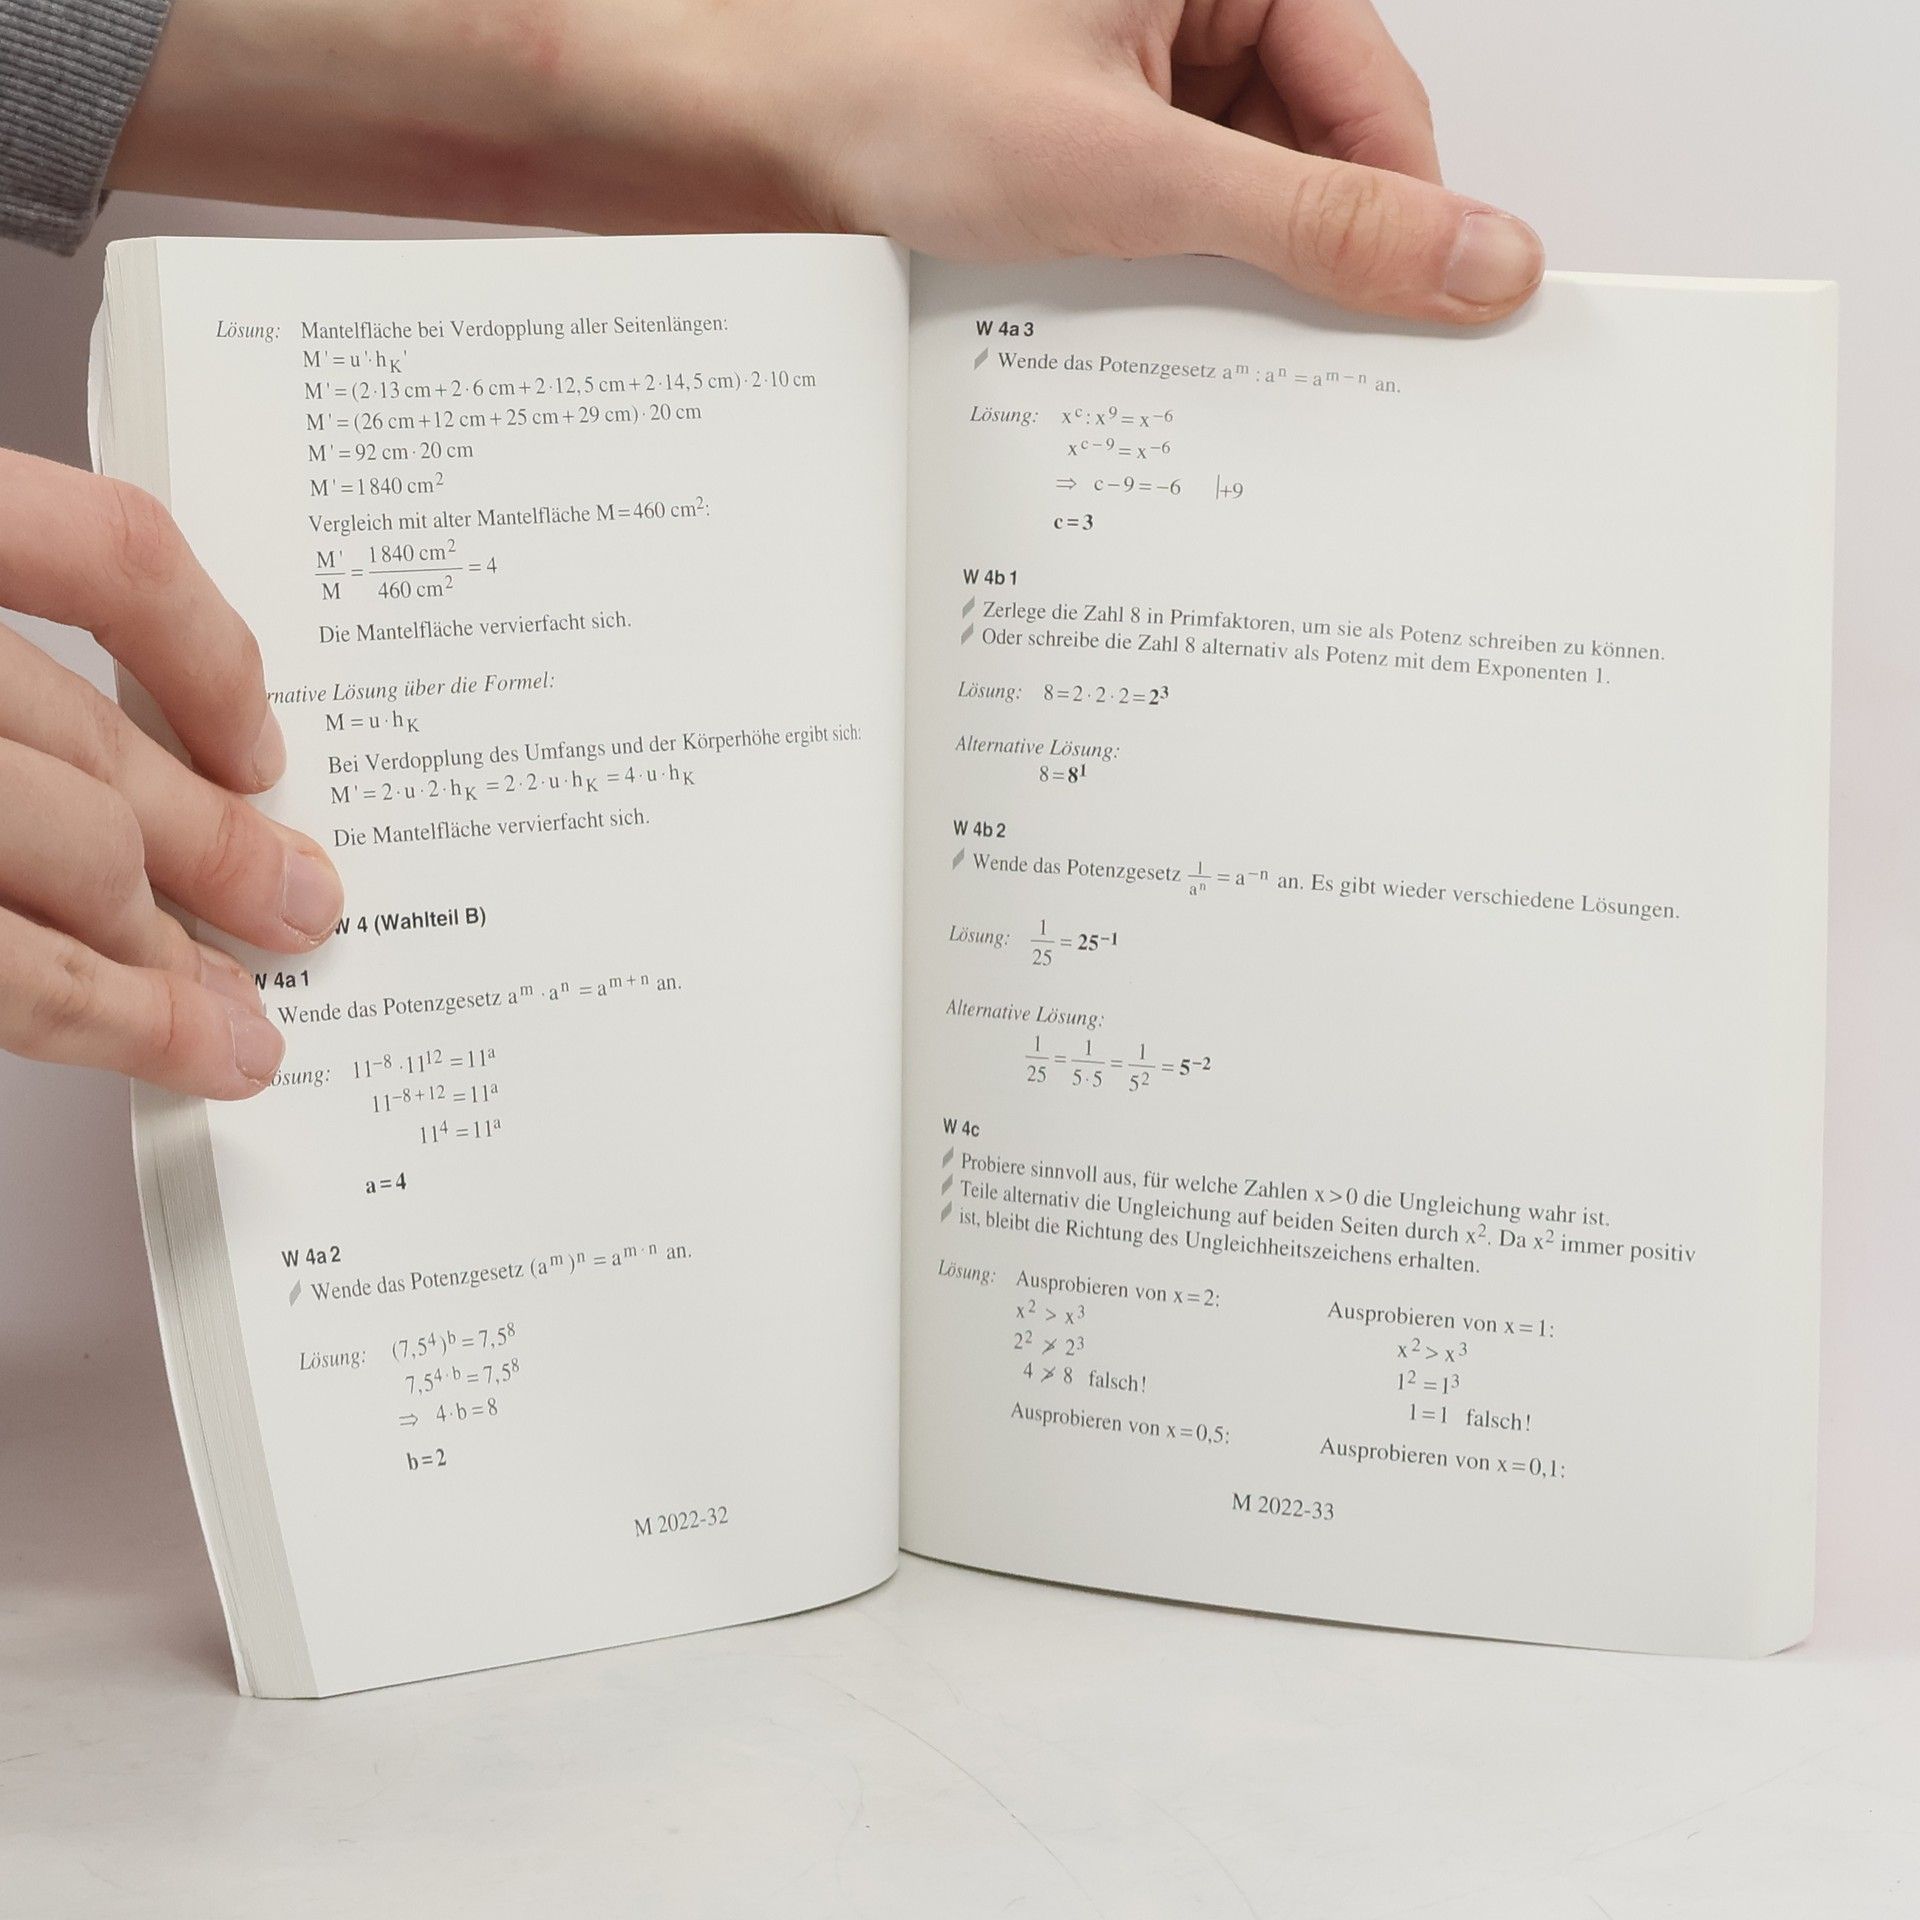 Lösung: Mantelfläche bei Verdopplung aller Seitenlängen:
M' = u'·hK'
M' = (2·13 cm + 2·6 cm + 2·12,5 cm + 2·14,5 cm)·2·10 cm
M' = (26 cm + 12 cm + 25 cm + 29 cm)·20 cm
M' = 92 cm·20 cm
M' = 1 840 cm²
Vergleich mit alter Mantelfläche M = 460 cm²:
M'/M = 1 840 cm²/460 cm² = 4
Die Mantelfläche vervierfacht sich.
Lösung über die Formel:
M = u·hK
Bei Verdopplung des Umfangs und der Körperhöhe ergibt sich:
M' = 2·u·2·hK = 2·2·u·hK = 4·u·hK
Die Mantelfläche vervierfacht sich.
W 4 (Wahlteil B)
W 4a 1
Wende das Potenzgesetz a^m · a^n = a^(m+n) an.
Lösung: 11^(−8) · 11^12 = 11^a
11^(−8+12) = 11^a
11^4 = 11^a
a = 4
W 4a 2
Wende das Potenzgesetz (a^m)^n = a^(m·n) an.
Lösung: (7,5^4)^b = 7,5^8
7,5^(4·b) = 7,5^8
⇒ 4·b = 8
b = 2
M 2022-32
W 4a 3
Wende das Potenzgesetz a^m : a^n = a^(m−n) an.
Lösung: x^c : x^9 = x^(−6)
x^(c−9) = x^(−6)
⇒ c − 9 = −6 |+9
c = 3
W 4b 1
Zerlege die Zahl 8 in Primfaktoren, um sie als Potenz schreiben zu können.
Oder schreibe die Zahl 8 alternativ als Potenz mit dem Exponenten 1.
Lösung: 8 = 2·2·2 = 2³
Alternative Lösung:
8 = 8¹
W 4b 2
Wende das Potenzgesetz 1/a^n = a^(−n) an. Es gibt wieder verschiedene Lösungen.
Lösung: 1/25 = 25^(−1)
Alternative Lösung:
1/25 = 1/(5·5) = 1/5² = 5^(−2)
W 4c
Probiere sinnvoll aus, für welche Zahlen x > 0 die Ungleichung wahr ist.
Teile alternativ die Ungleichung auf beiden Seiten durch x². Da x² immer positiv
ist, bleibt die Richtung des Ungleichheitszeichens erhalten.
Lösung: Ausprobieren von x = 2:
x² > x³
2² ≯ 2³
4 ≯ 8 falsch!
Ausprobieren von x = 0,5:
Ausprobieren von x = 1:
x² > x³
1² = 1³
1 = 1 falsch!
Ausprobieren von x = 0,1:
M 2022-33